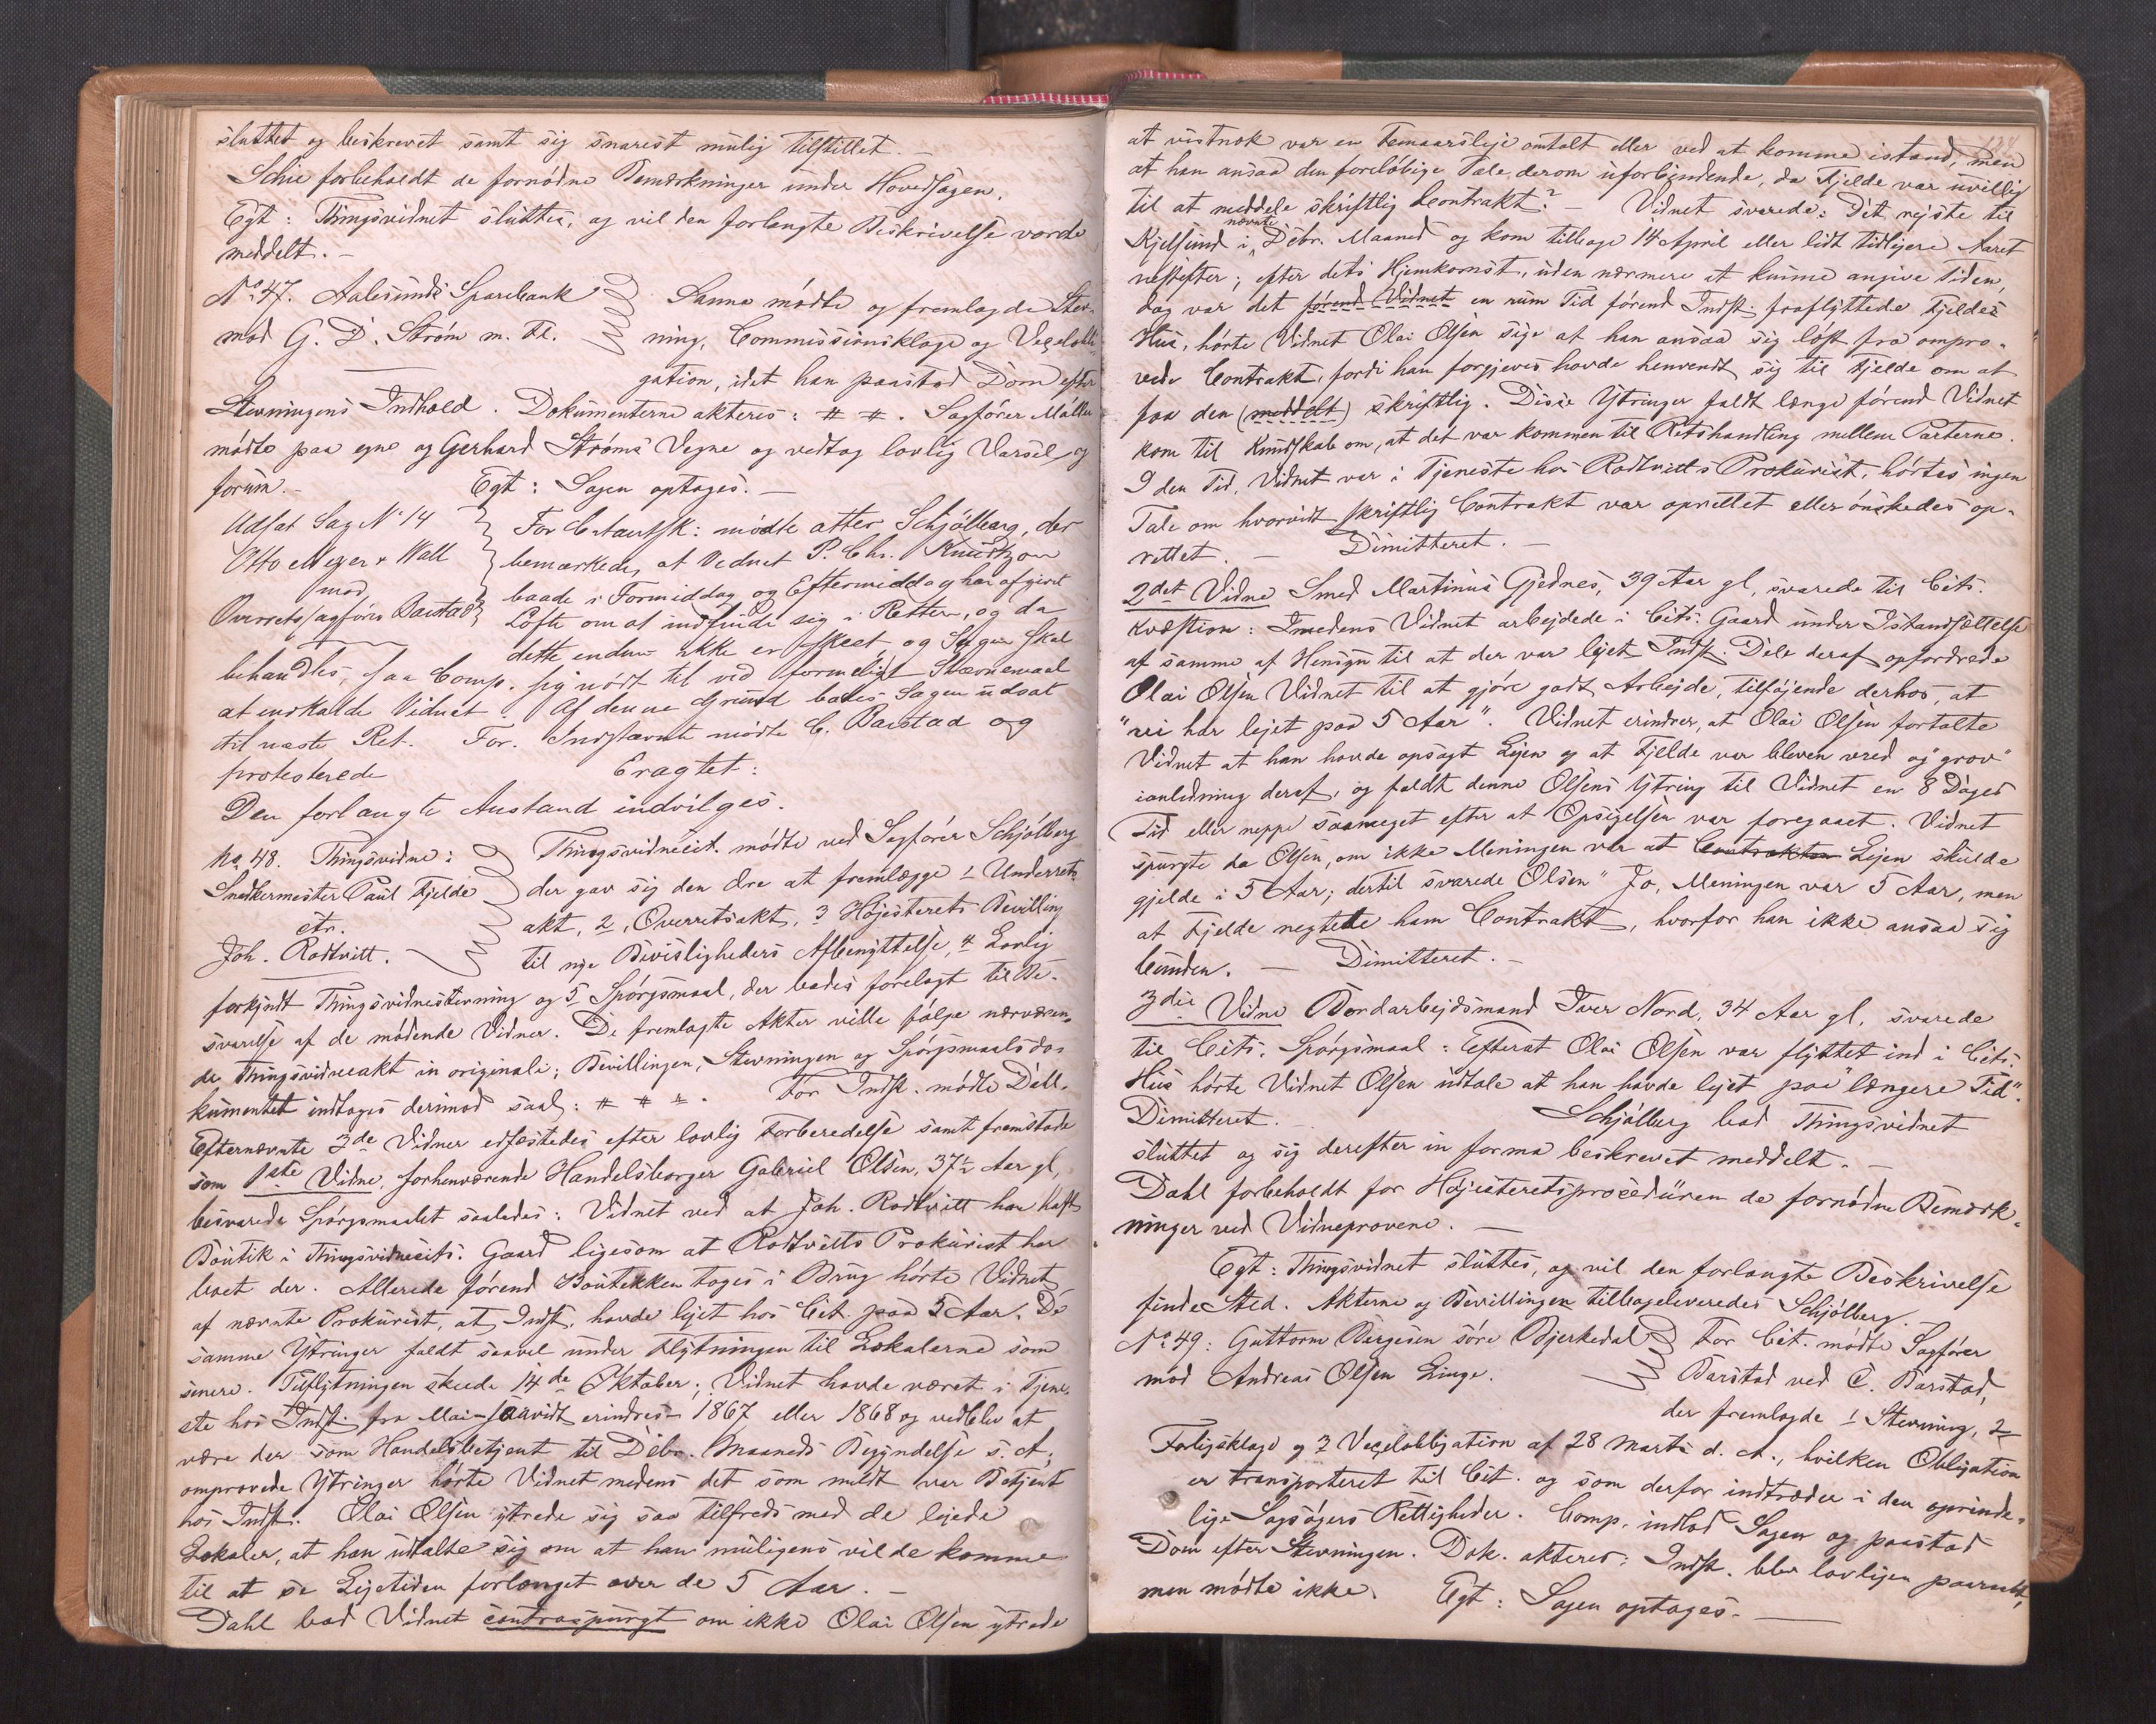 sluttet og beskrevet samt sig snarest mulig tilstillet. —
Schie forbeholdt de fornødne Bemærkninger under Hovedsagen.
Egt: Thingsvidnet sluttes, og vil den forlangte Beskrivelse vorde
meddelt. —
No 47. Aalesunds Sparebank
mod G. D. Strøm m. Fl.
Sanne mødte og fremlagde Stev-
ning, Commissionsklage og Vexelobli-
gation, idet han paastod Dom efter
Stevningens Indhold. Dokumenterne akteres: # #. Sagfører Møller
mødte paa egne og Gerhard Strøms Vegne og vedtog lovlig Varsel og
forum. — Egt: Sagen optages. —
Udsat Sag No 14
Otto Meyer & Wall
mod
Overretssagfører Barstad
For Citantsk: mødte atter Schjølberg, der
bemærkede, at Vidnet P. Chr. Knudtzon
baade i Formiddag og Eftermiddag har afgivet
Løfte om at indfinde sig i Retten, og da
dette endnu ikke er skeet, og Sagen skal
behandles, saa Comp. sig nødt til ved formeligt Stævnemaal
at indkalde Vidnet. Af denne Grund bades Sagen udsat
til næste Ret. For Indstævnte mødte C. Barstad og
protesterede Eragtet:
Den forlangte Anstand indvilges.
No 48. Thingsvidne:
Snedkermester Paul Fjelde
ctr.
Joh. Rødtvitt.
Thingsvidnecit. mødte ved Sagfører Schjølberg
der gav sig den Ære at fremlægge 1 Underrets-
akt, 2, Overretsakt, 3 Højesterets Bevilling
til nye Bevisligheders Afbenyttelse, 4 Lovlig
forkyndt Thingsvidnestevning og 5 Spørgsmaal, der bades forelagt til Be-
svarelse af de mødende Vidner. De fremlagte Akter ville følge nærværen-
de Thingsvidneakt in originali; Bevillingen, Stevningen og Spørgsmaalsdo-
kumentet indtages derimod saal: # # #. For Indst. mødte Dahl.
Efternævnte 3de Vidner edfæstedes efter lovlig Forberedelse samt fremstode
som 1ste Vidne, forhenværende Handelsborger Gabriel Olsen, 37½ Aar gl,
besvarede Spørgsmaalet saaledes: Vidnet ved at Joh. Rødtvitt har havt
Boutik i Thingsvidnecits. Gaard ligesom at Rødtvitts Prokurist har
boet der. Allerede førend Boutikken toges i Brug hørte Vidnet
af nævnte Prokurist, at Indst. havde lejet hos Cit. paa 5 Aar. De
samme Ytringer faldt saavel under Flytningen til Lokalerne som
senere. Tilflytningen skeede 14de Oktober; Vidnet havde været i Tjene-
ste hos Indst. fra Mai – saavidt erindres – 1867 eller 1868 og vedblev at
være der som Handelsbetjent til Debr. Maaneds Begyndelse s. A;
omprøvede Ytringer hørte Vidnet medens det som meldt var Betjent
hos Indst. Olai Olsen ytrede sig saa tilfreds med de lejede
Lokaler, at han udtalte sig om at han muligens vilde komme
til at se Lejetiden forlænget over de 5 Aar. —
Dahl bad Vidnet contraspurgt om ikke Olai Olsen ytrede
at vistnok var en Femaarsleje omtalt eller ved at komme istand, men
at han ansaa den foreløbige Tale derom uforbindende, da Fjelde var uvillig
til at meddele skriftlig Contrakt? — Vidnet svarede: Det rejste til
nævnte
Kjelsund i Debr. Maaned og kom tilbage 14 April eller lidt tidligere Aaret
næstefter; efter dets Hjemkomst, uden nærmere at kunne angive Tiden,
dog var det førend Vidnet en rum Tid førend Indst. fraflyttede Fjeldes
Hus, hørte Vidnet Olai Olsen sige at han ansaa sig løst fra ompro-
vede Contrakt, fordi han forgjeves havde henvendt sig til Fjelde om at
faa den (meddelt) skriftlig. Disse Ytringer faldt længe førend Vidnet
kom til Kundskab om, at det var kommen til Retshandling mellem Parterne.
I den Tid, Vidnet var i Tjeneste hos Rødtvitts Prokurist, hørtes ingen
Tale om hvorvidt skriftlig Contrakt var oprettet eller ønskedes op-
rettet. — Dimitteret. —
2det Vidne Smed Martinus Gjednes, 39 Aar gl, svarede til Cits.
Kvæstion: Imedens Vidnet arbejdede i Cits. Gaard under Istandsættelse
af samme af Hensyn til at der var lejet Indst. Dele deraf opfordrede
Olai Olsen Vidnet til at gjøre godt Arbejde, tilføjende derhos, at
"vi har lejet paa 5 Aar". Vidnet erindrer, at Olai Olsen fortalte
Vidnet at han havde opsagt Lejen og at Fjelde var bleven vred og "grov"
ianledning deraf, og faldt denne Olsens Ytring til Vidnet en 8 Dages
Tid eller neppe saameget efter at Opsigelsen var foregaaet. Vidnet
spurgte da Olsen, om ikke Meningen var at Contrakten Lejen skulde
gjelde i 5 Aar; dertil svarede Olsen "Jo, Meningen var 5 Aar, men
at Fjelde negtede ham Contrakt, hvorfor han ikke ansaa sig
bunden. — Dimitteret. —
3die Vidne Bordarbejdsmand Iver Nord, 34 Aar gl, svarede
til Cits. Spørgsmaal: Efterat Olai Olsen var flyttet ind i Cits
Hus hørte Vidnet Olsen udtale at han havde lejet paa "længere Tid".
Dimitteret. — Schjølberg bad Thingsvidnet
sluttet og sig derefter in forma beskrevet meddelt. —
Dahl forbeholdt for Højesteretsproceduren de fornødne Bemærk-
ninger ved Vidneprovene. —
Egt: Thingsvidnet sluttes, og vil den forlangte Beskrivelse
finde Sted. Akterne og Bevillingen tilbageleveredes Schjølberg.
No 49: Guttorm Børgesen søre Bjerkedal
mod Andreas Olsen Linge.
For Cit. mødte Sagfører
Barstad ved C. Barstad,
der fremlagde 1 Stevning, 2
Forligsklage og 3 Vexelobligation af 28 Marts d. A., hvilken Obligation
er transporteret til Cit. og som derfor indtræder i den oprinde-
lige Sagsøgers Rettigheder. Comp. indlod Sagen og paastod
Dom efter Stevningen. Dok. akteres: Indst. blev lovligen paaraabt,
men mødte ikke. Egt: Sagen optages. —